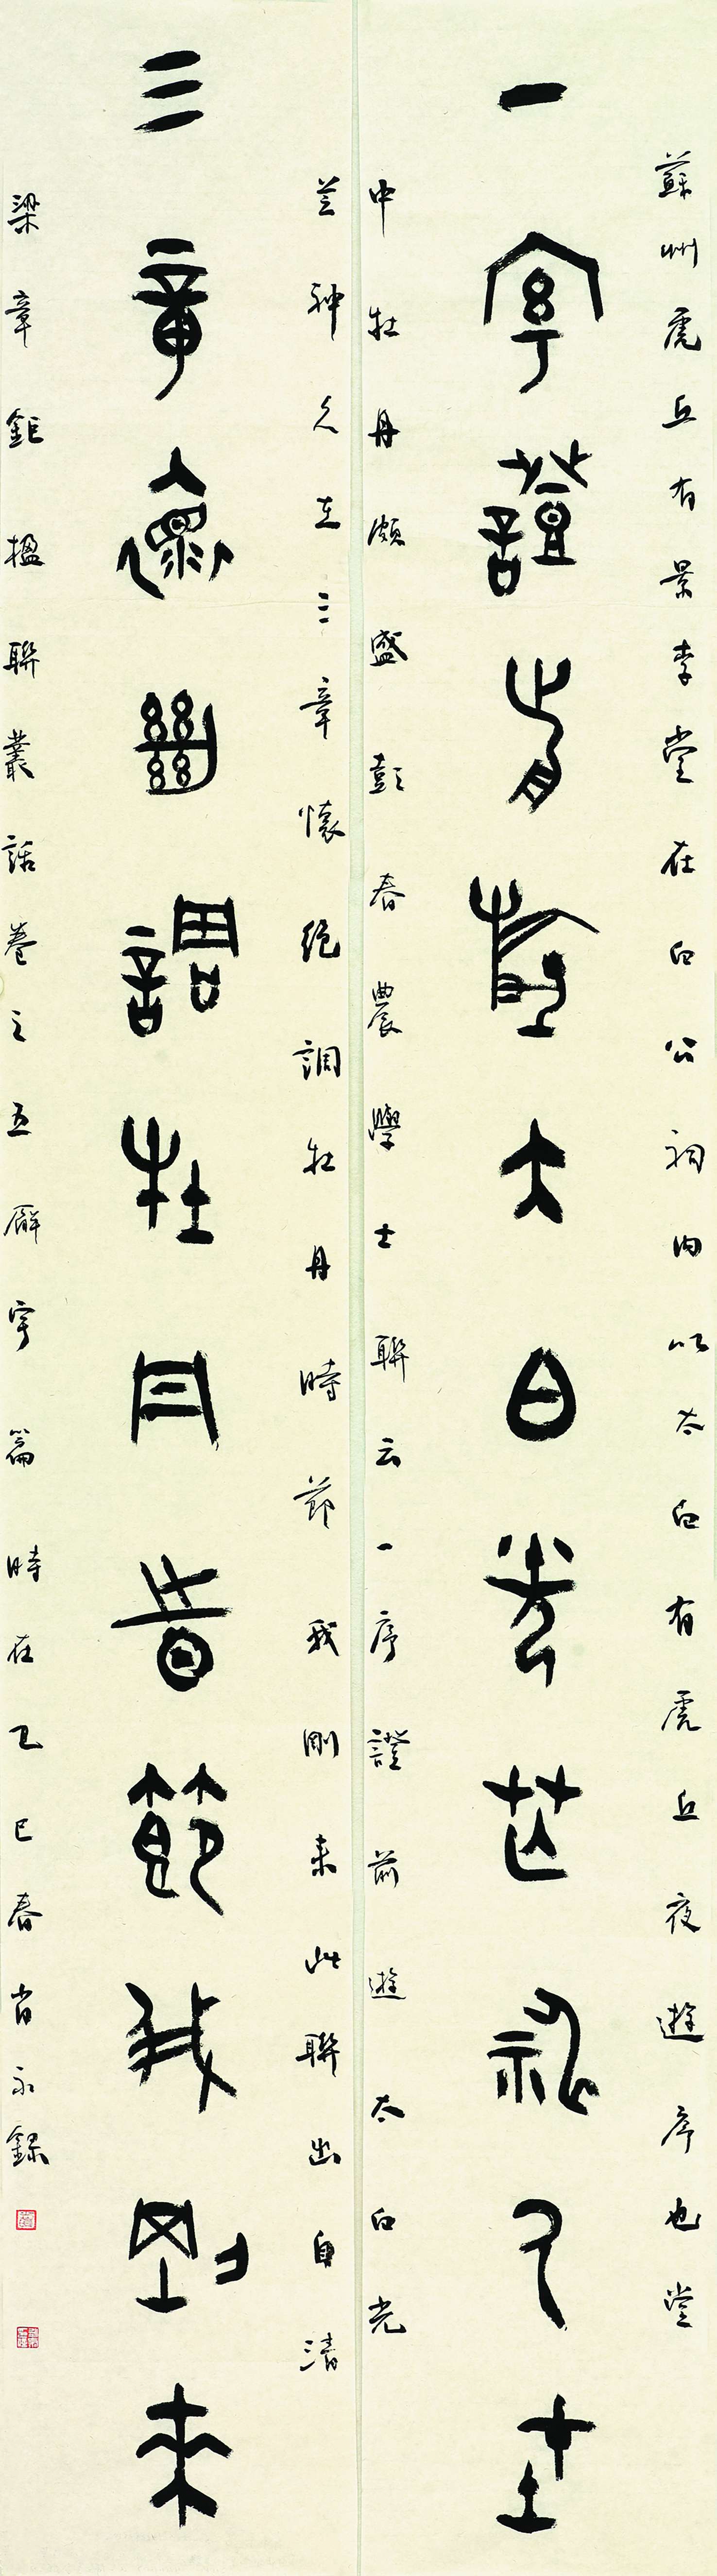 蘇州虎丘有景李堂在白公祠内以太白有虎丘夜遊序也堂
一序證前遊太白光芒神久在
中牡丹頗盛彭春農學士聯云一序證前遊太白光
芒神久在三章懷絕調牡丹時節我剛来此聯出自清
三章懷絕調牡丹時節我剛來
梁章鉅楹聯叢話卷之五廨宇篇時在乙巳春肖永錄